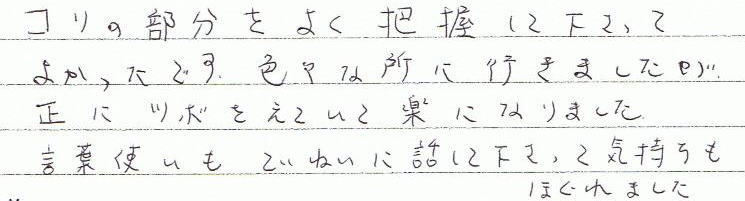 コリの部分をよく把握して下さって
よかったです。色々な所に行きましたが、
正にツボをえていて楽になりました
言葉使いもていねいに話して下さって気持ちも
ほぐれました